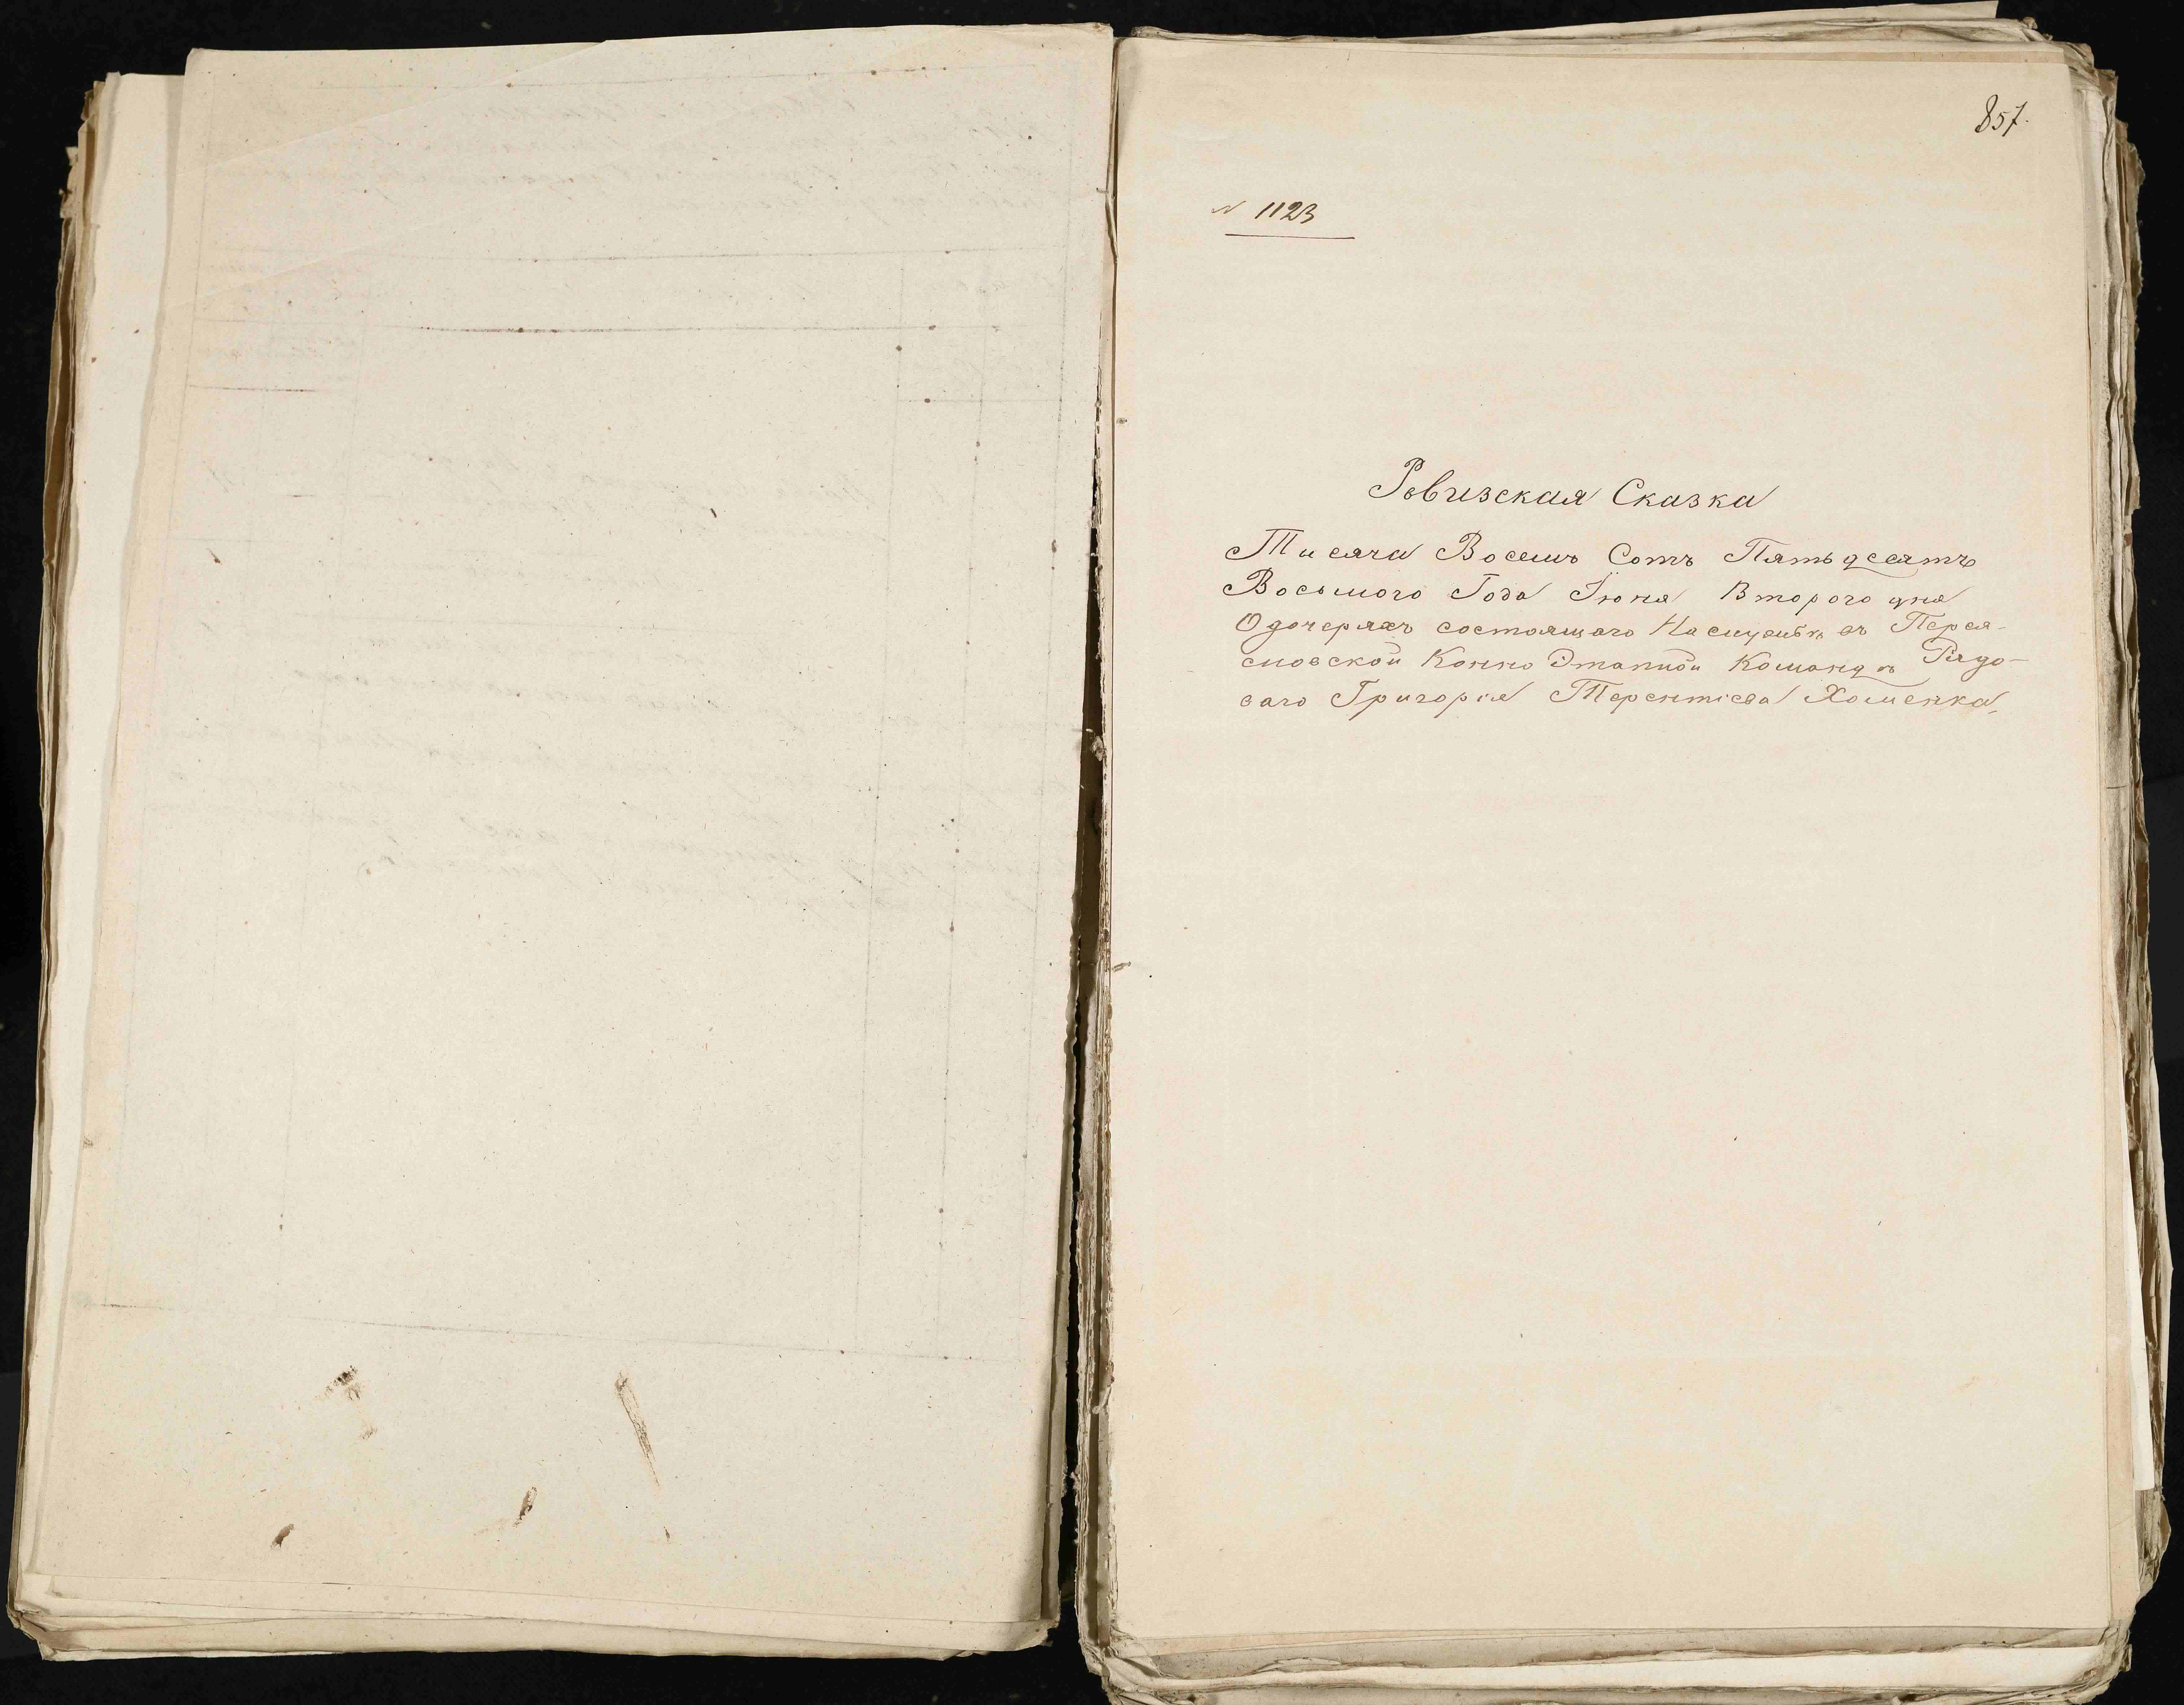 857.
№ 1123
Ревизская Сказка
Тисяча Восемъ Сотъ Пятьдесятъ
Восьмого Года Іюня Второго дня
О дочеряхъ состоящаго На службѣ въ Перея-
словской Конно Этапной Командѣ Рядо-
ваго Григорія Терентіева Хоменка,